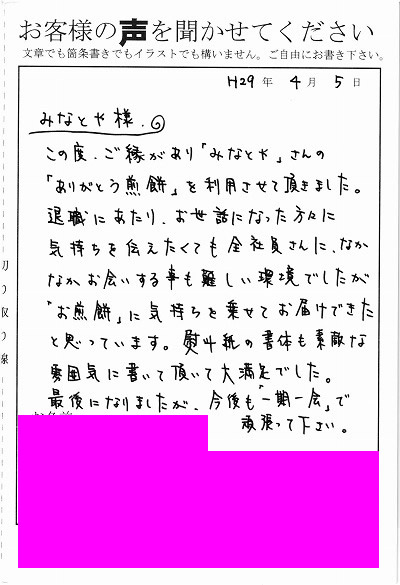 お客様の声を聞かせてください
文章でも箇条書きでもイラストでも構いません。ご自由にお書き下さい。
H29年 4月 5日
みなとや様.
この度、ご縁があり「みなとや」さんの
「ありがとう煎餅」を利用させて頂きました。
退職にあたり、お世話になった方々に
気持ちを伝えたくても全社員さんに、なか
なかお会いする事も難しい環境でしたが
"お煎餅"に気持ちを乗せてお届けできた
と思っています。熨斗紙の書体も素敵な
雰囲気に書いて頂いて大満足でした。
最後になりましたが、今後も「一期一会」で
頑張って下さい。